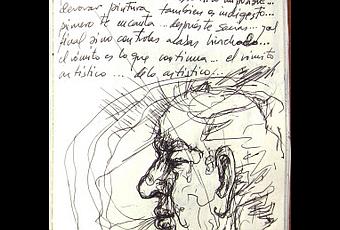 devorar pintura también es indigesto...
primero te encanta... después te sacias... y al
final sino controlas acabas hinchado...
el vómito es lo que continua... el vómito
artístico... de lo artístico...